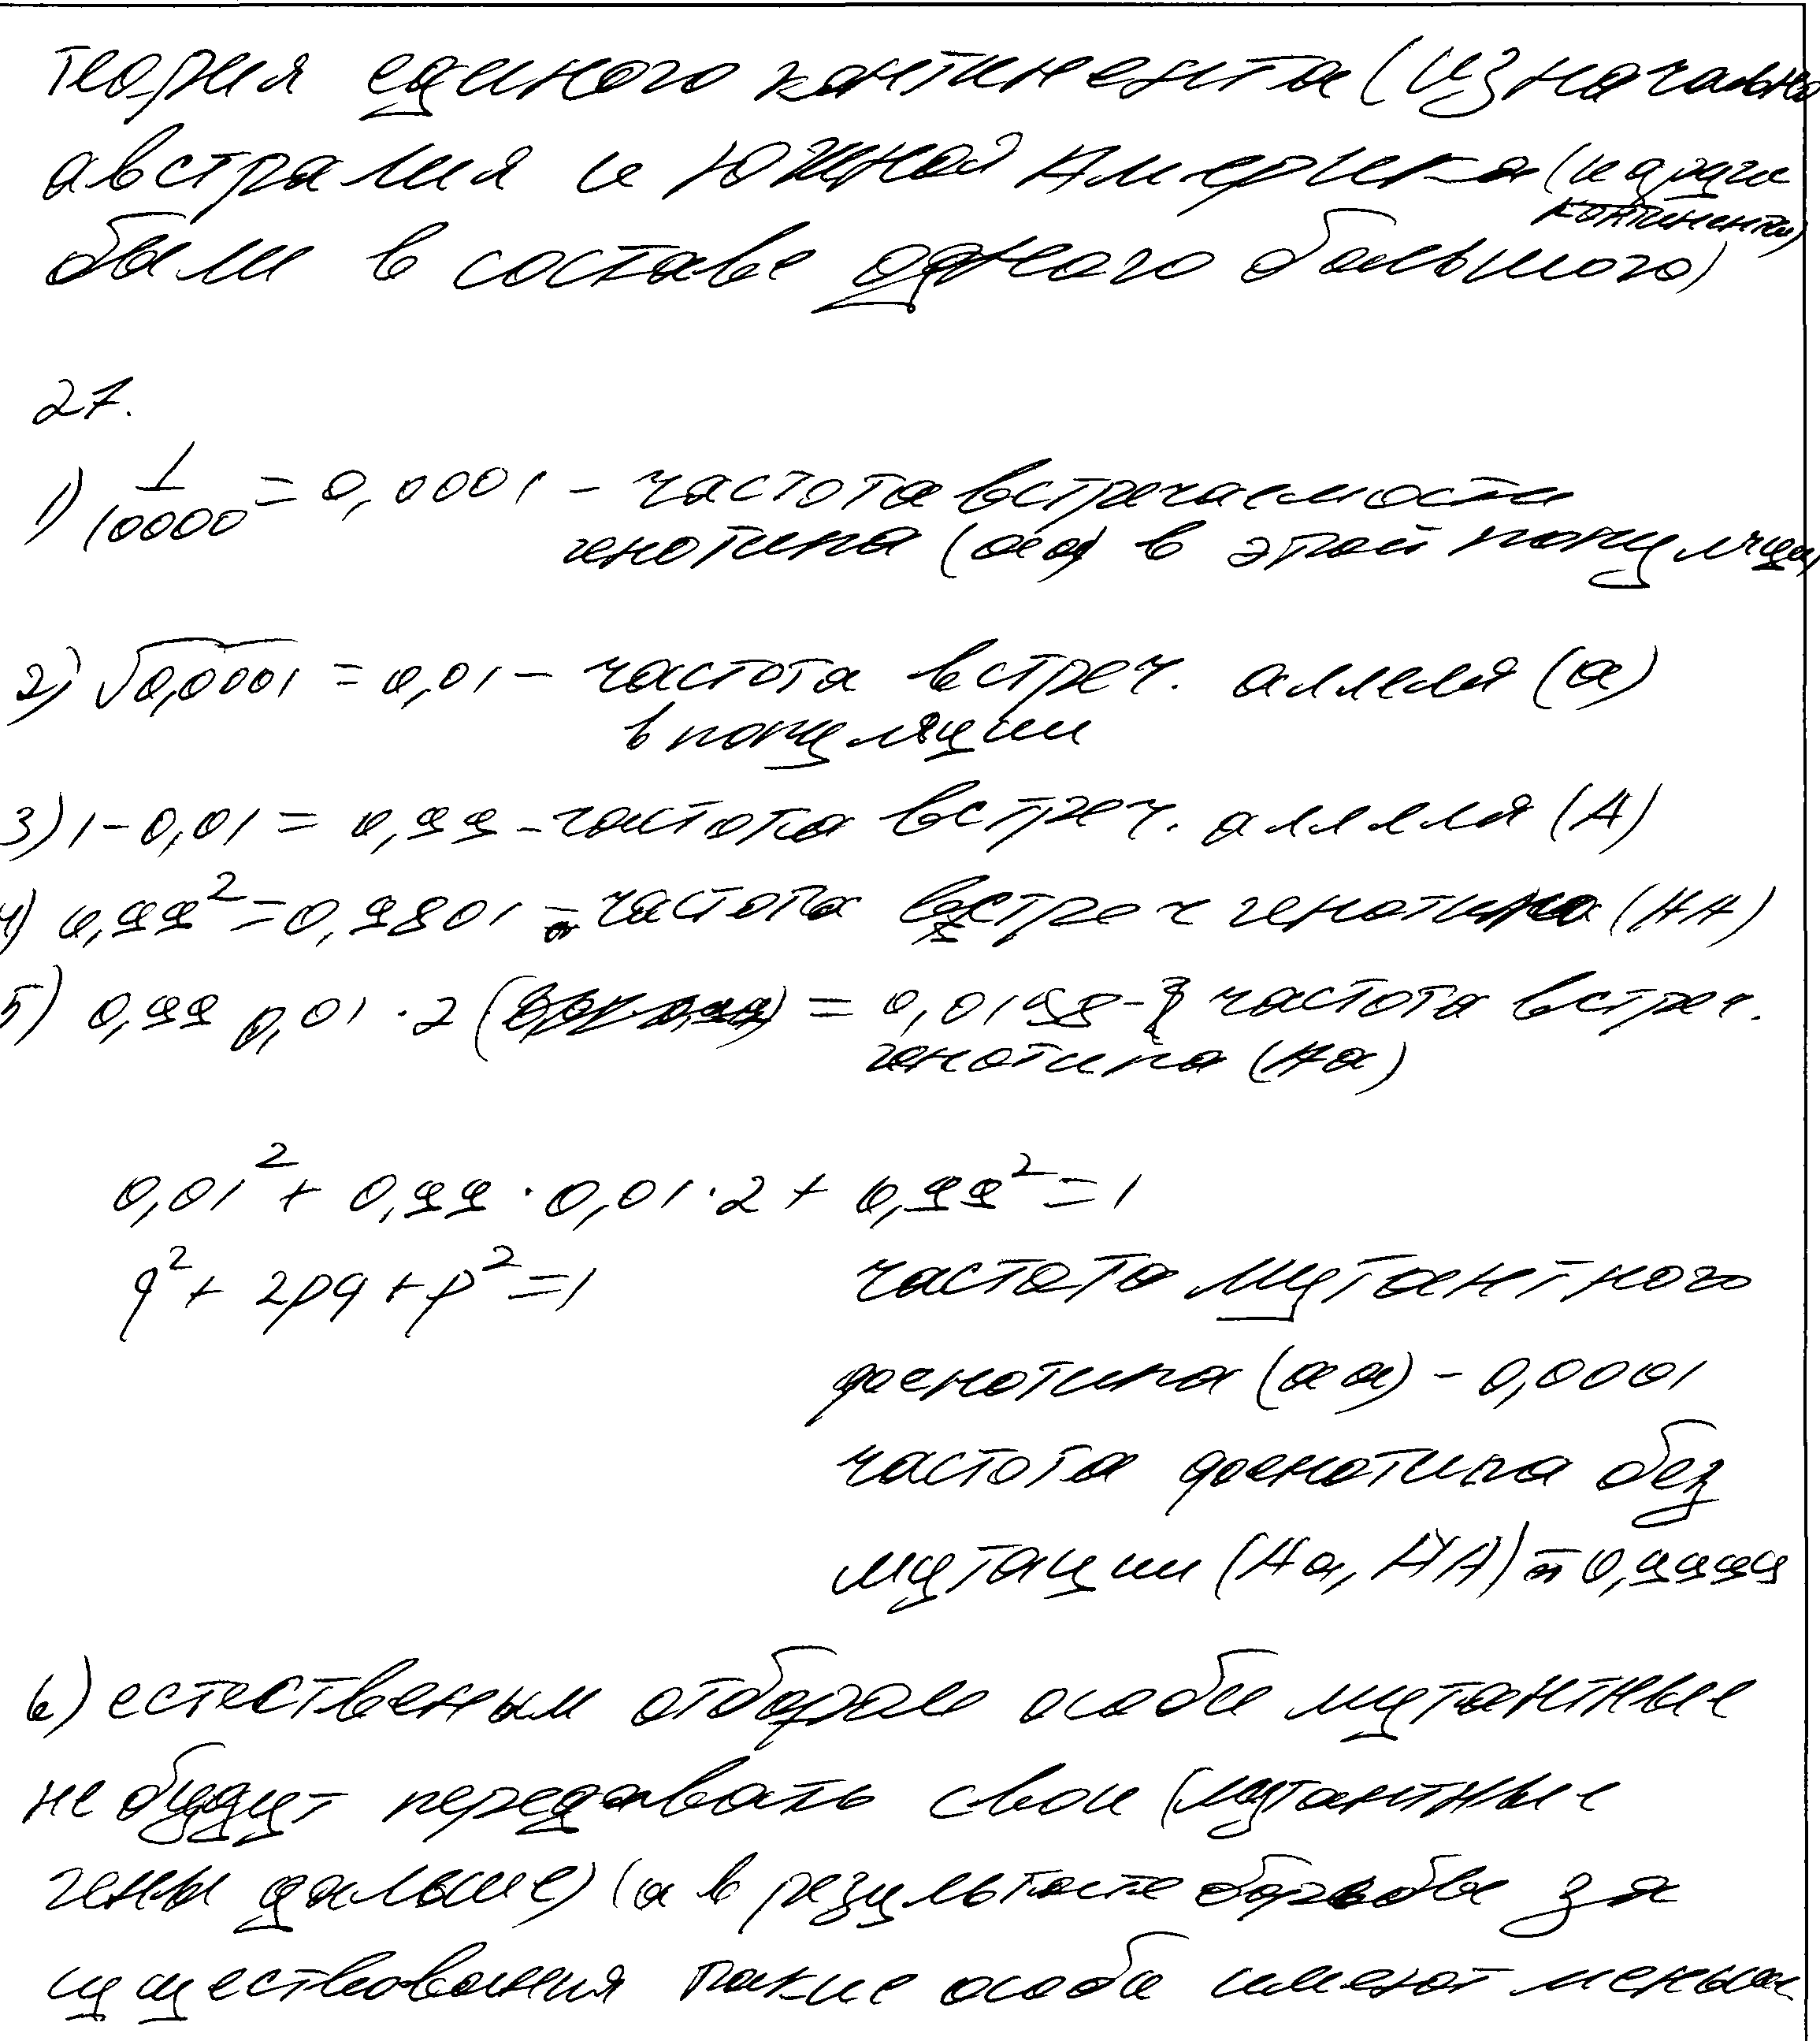 теория единого континента (изначально
австралия и Южная Америка (и други
континенты)
были в составе одного большого)
27.
1) 1/10000 = 0,0001 - частота встречаемости
генотипа (аа) в этой популяции
2) √0,0001 = 0,01 - частота встреч. аллеля (а)
в популяции
3) 1-0,01 = 0,99 - частота встреч. аллеля (А)
4) 0,99² = 0,9801 - частота встреч генотипа (АА)
5) 0,99 0,01 · 2 = 0,0198 - частота встреч.
генотипа (Аа)
0,01² + 0,99 · 0,01 · 2 + 0,99² = 1
q² + 2pq + p² = 1
частота мутантного
фенотипа (аа) - 0,0001
частота фенотипа без
мутации (Аа, АА) - 0,9999
6) естественым отбором особи мутантные
не будут передавать свои (мутантные
гены дальше) (а в результате борьбы за
существования такие особи имеют меньши